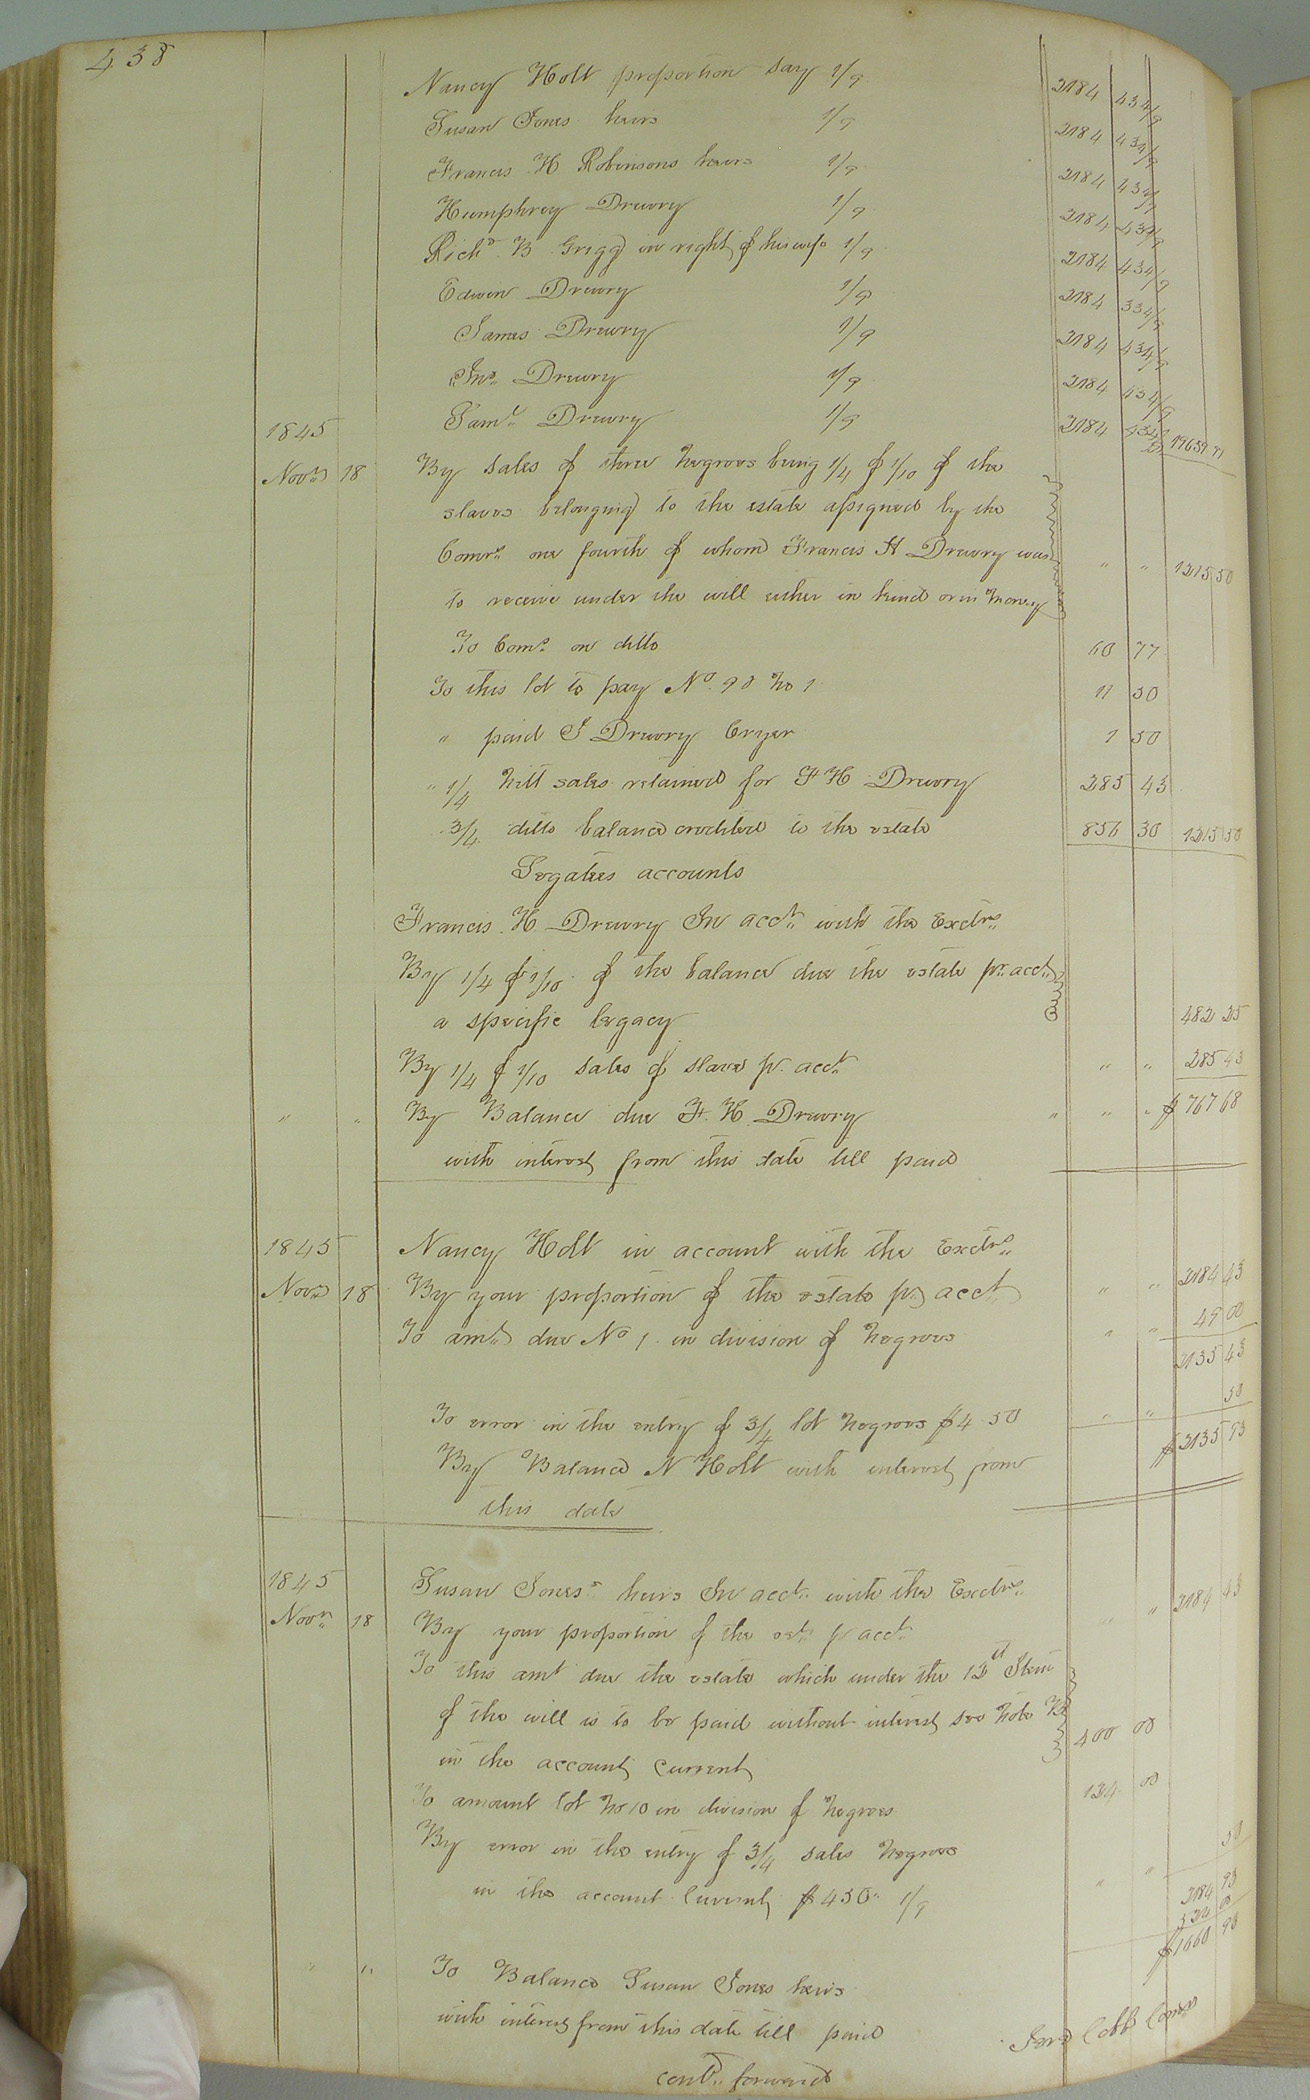 438
Nancy Holt proportion say 1/9 2184 43 4/9
Susan Jones heirs 1/9 2184 43 4/9
Francis H Robinsons heirs 1/9 2184 43 4/9
Humphrey Drewry 1/9 2184 43 4/9
Richd B Grigg in right of his wife 1/9 2184 43 4/9
Edwin Drewry 1/9 2184 33 4/9
James Drewry 1/9 2184 43 4/9
Jno Drewry 1/9 2184 43 4/9
1845 Saml Drewry 1/9 2184 43 4/9 19659 91
Novr 18 By sales of three negroes being 1/4 of 1/10 of the
slaves belonging to the estate assigned by the
Comrs one fourth of whom Francis H Drewry was " " 1215 50
to receive under the will either in kind or in money
To Coms on ditto 60 77
To this lot to pay No. 98 No 1 11 50
" paid J Drewry Cryer 1 50
" 1/4 nett sales retained for F H Drewry 285 43
3/4 ditto balance credited to the estate 856 30 1215 50
Legatees accounts
Francis H. Drewry In acct with the Exctrs
By 1/4 of 1/10 of the balance due the estate pr acct
a specific legacy 482 25
By 1/4 of 1/10 sales of slaves pr acct " " 285 43
" " By Balance due F. H. Drewry " " " $767 68
with interest from this date till paid
1845 Nancy Holt in account with the Exctrs
Novr 18 By your proportion of the estate pr acct " " 2184 43
To amt due No 1 in division of negroes " " 49 00
2135 43
50
To error in the entry of 3/4 lot negroes $4 50 " "
By Balance N Holt with interest from $2135 93
this date
1845 Susan Jones heirs In acct with the Exctrs
Novr 18 By your proportion of the est pr acct " " 2184 43
To this amt due the estate which under the 12th Item
of the will is to be paid without interest see Note
in the account current 400 00
To amount lot No 10 in division of negroes 124 00
By error in the entry of 3/4 sales negroes 50
in the account Current $4 50 1/9 " " 2184 93
524 00
$1660 93
" " To Balance Susan Jones heirs
with interest from this date till paid
Cobb Comr
contd forward